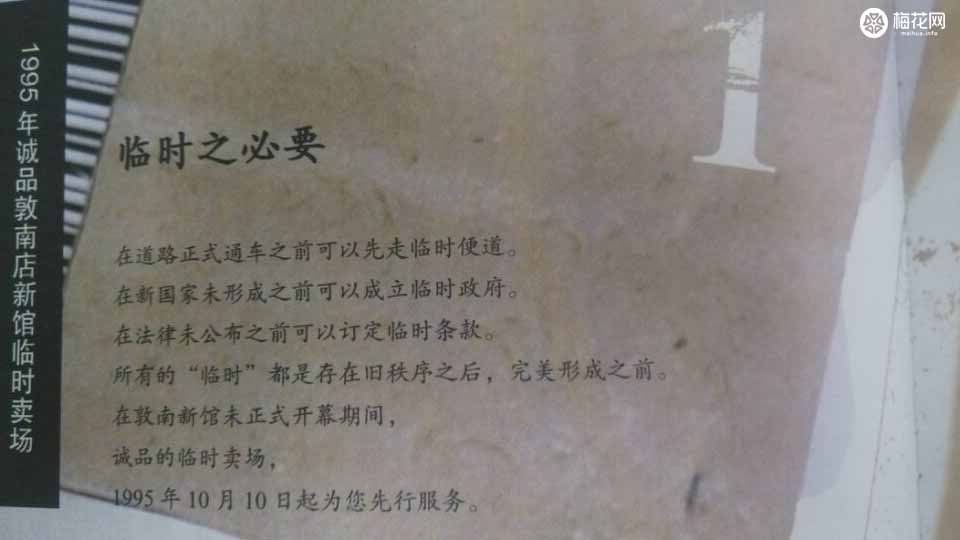 梅花网
maihua.info
1
1995年诚品敦南店新馆临时卖场
临时之必要
在道路正式通车之前可以先走临时便道。
在新国家未形成之前可以成立临时政府。
在法律未公布之前可以订定临时条款。
所有的“临时”都是存在旧秩序之后，完美形成之前。
在敦南新馆未正式开幕期间，
诚品的临时卖场，
1995年10月10日起为您先行服务。